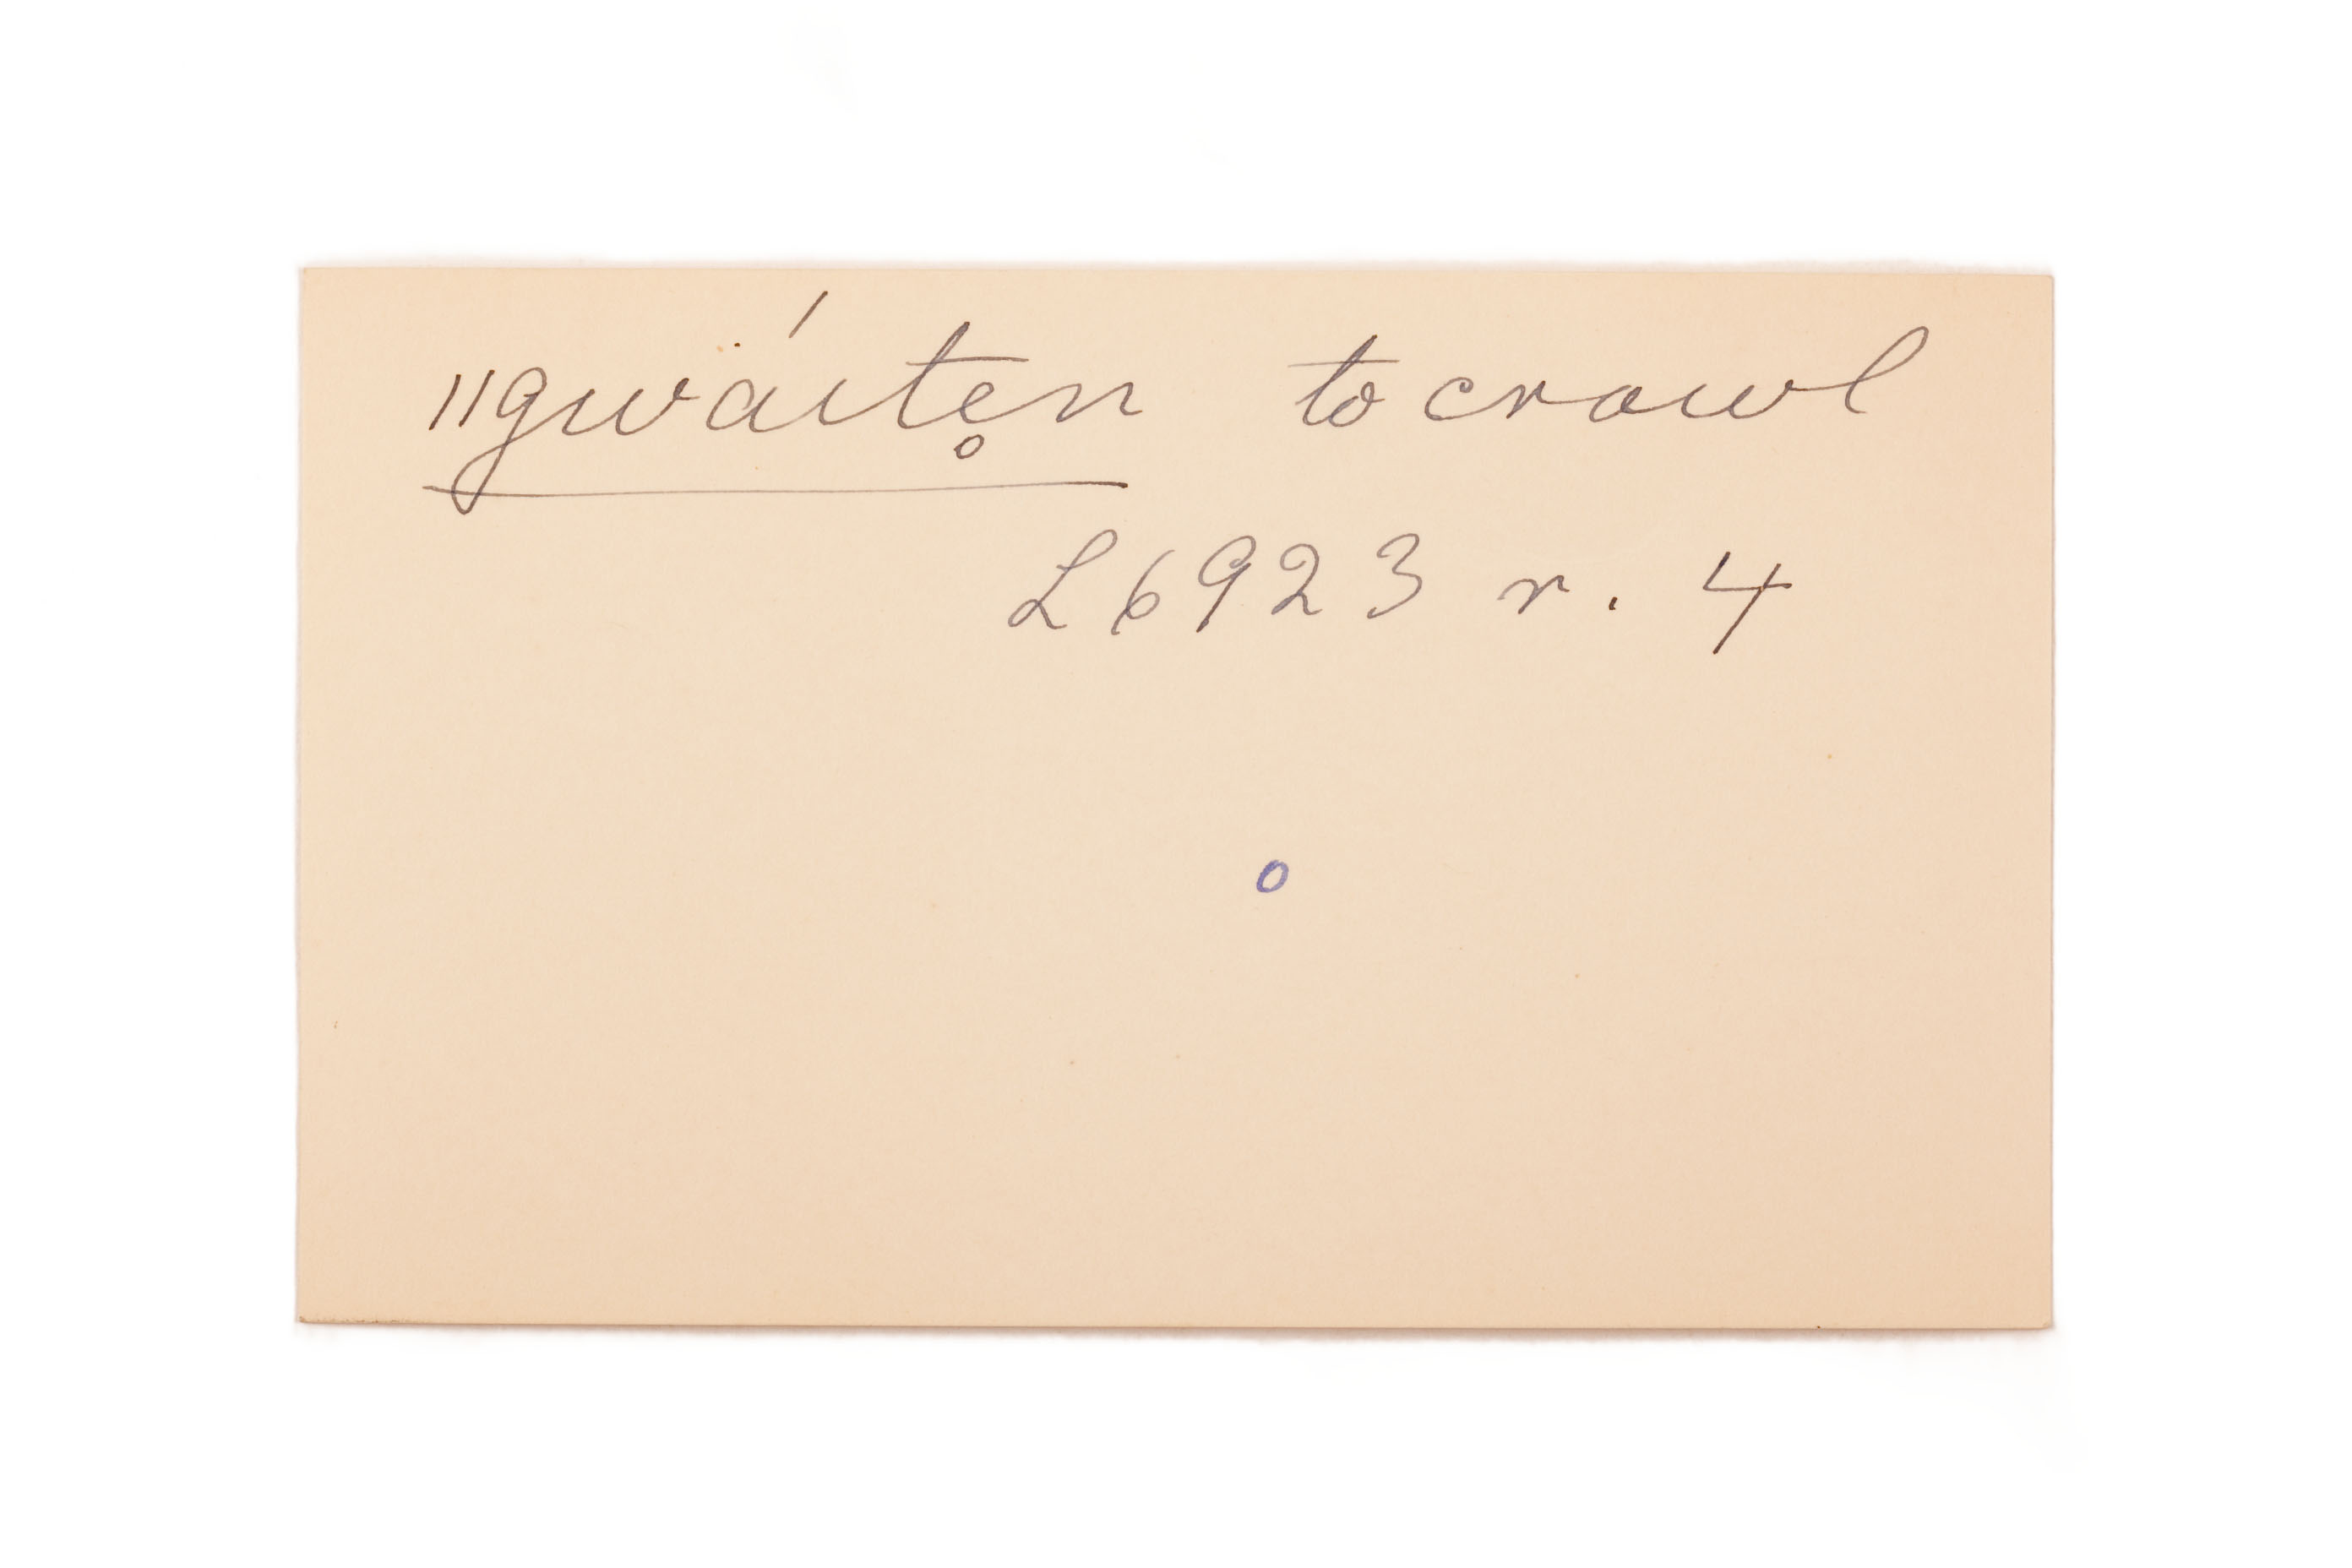 ǁgwáite̥n to crawl
L 6923 r. 4
o